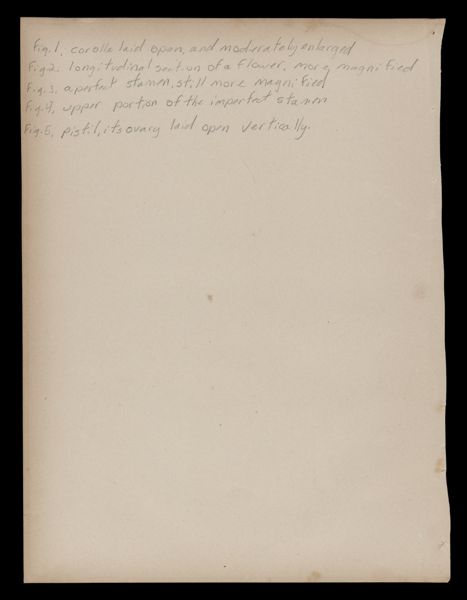 Fig. 1, corolla laid open, and moderately enlarged
Fig 2. longitudinal section of a flower, more magnified
Fig. 3. a perfect stamen, still more magnified
Fig. 4, upper portion of the imperfect stamen
Fig. 5, pistil, its ovary laid open vertically.